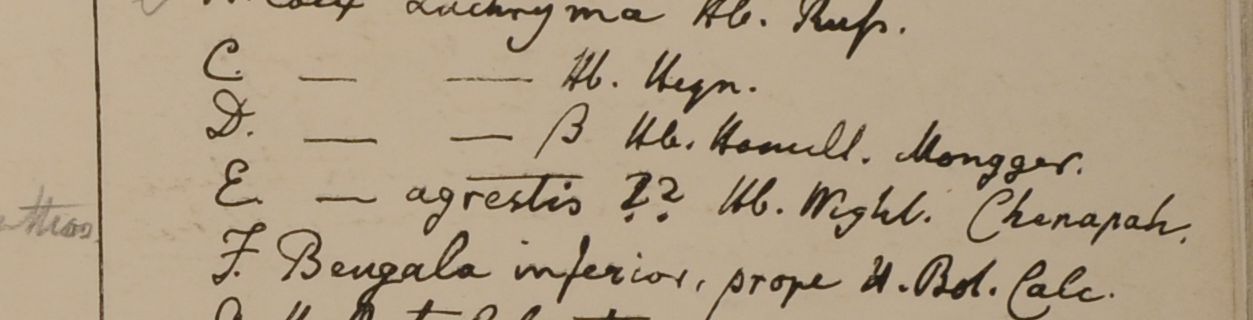 Coix Lachryma Hb. Russ.
C. — — Hb. Heyn.
D. — — β Hb. Hamill. Mongger.
E. — agrestis ?? Hb. Wight. Chenapah.
F. Bengala inferior, prope H. Bot. Calc.